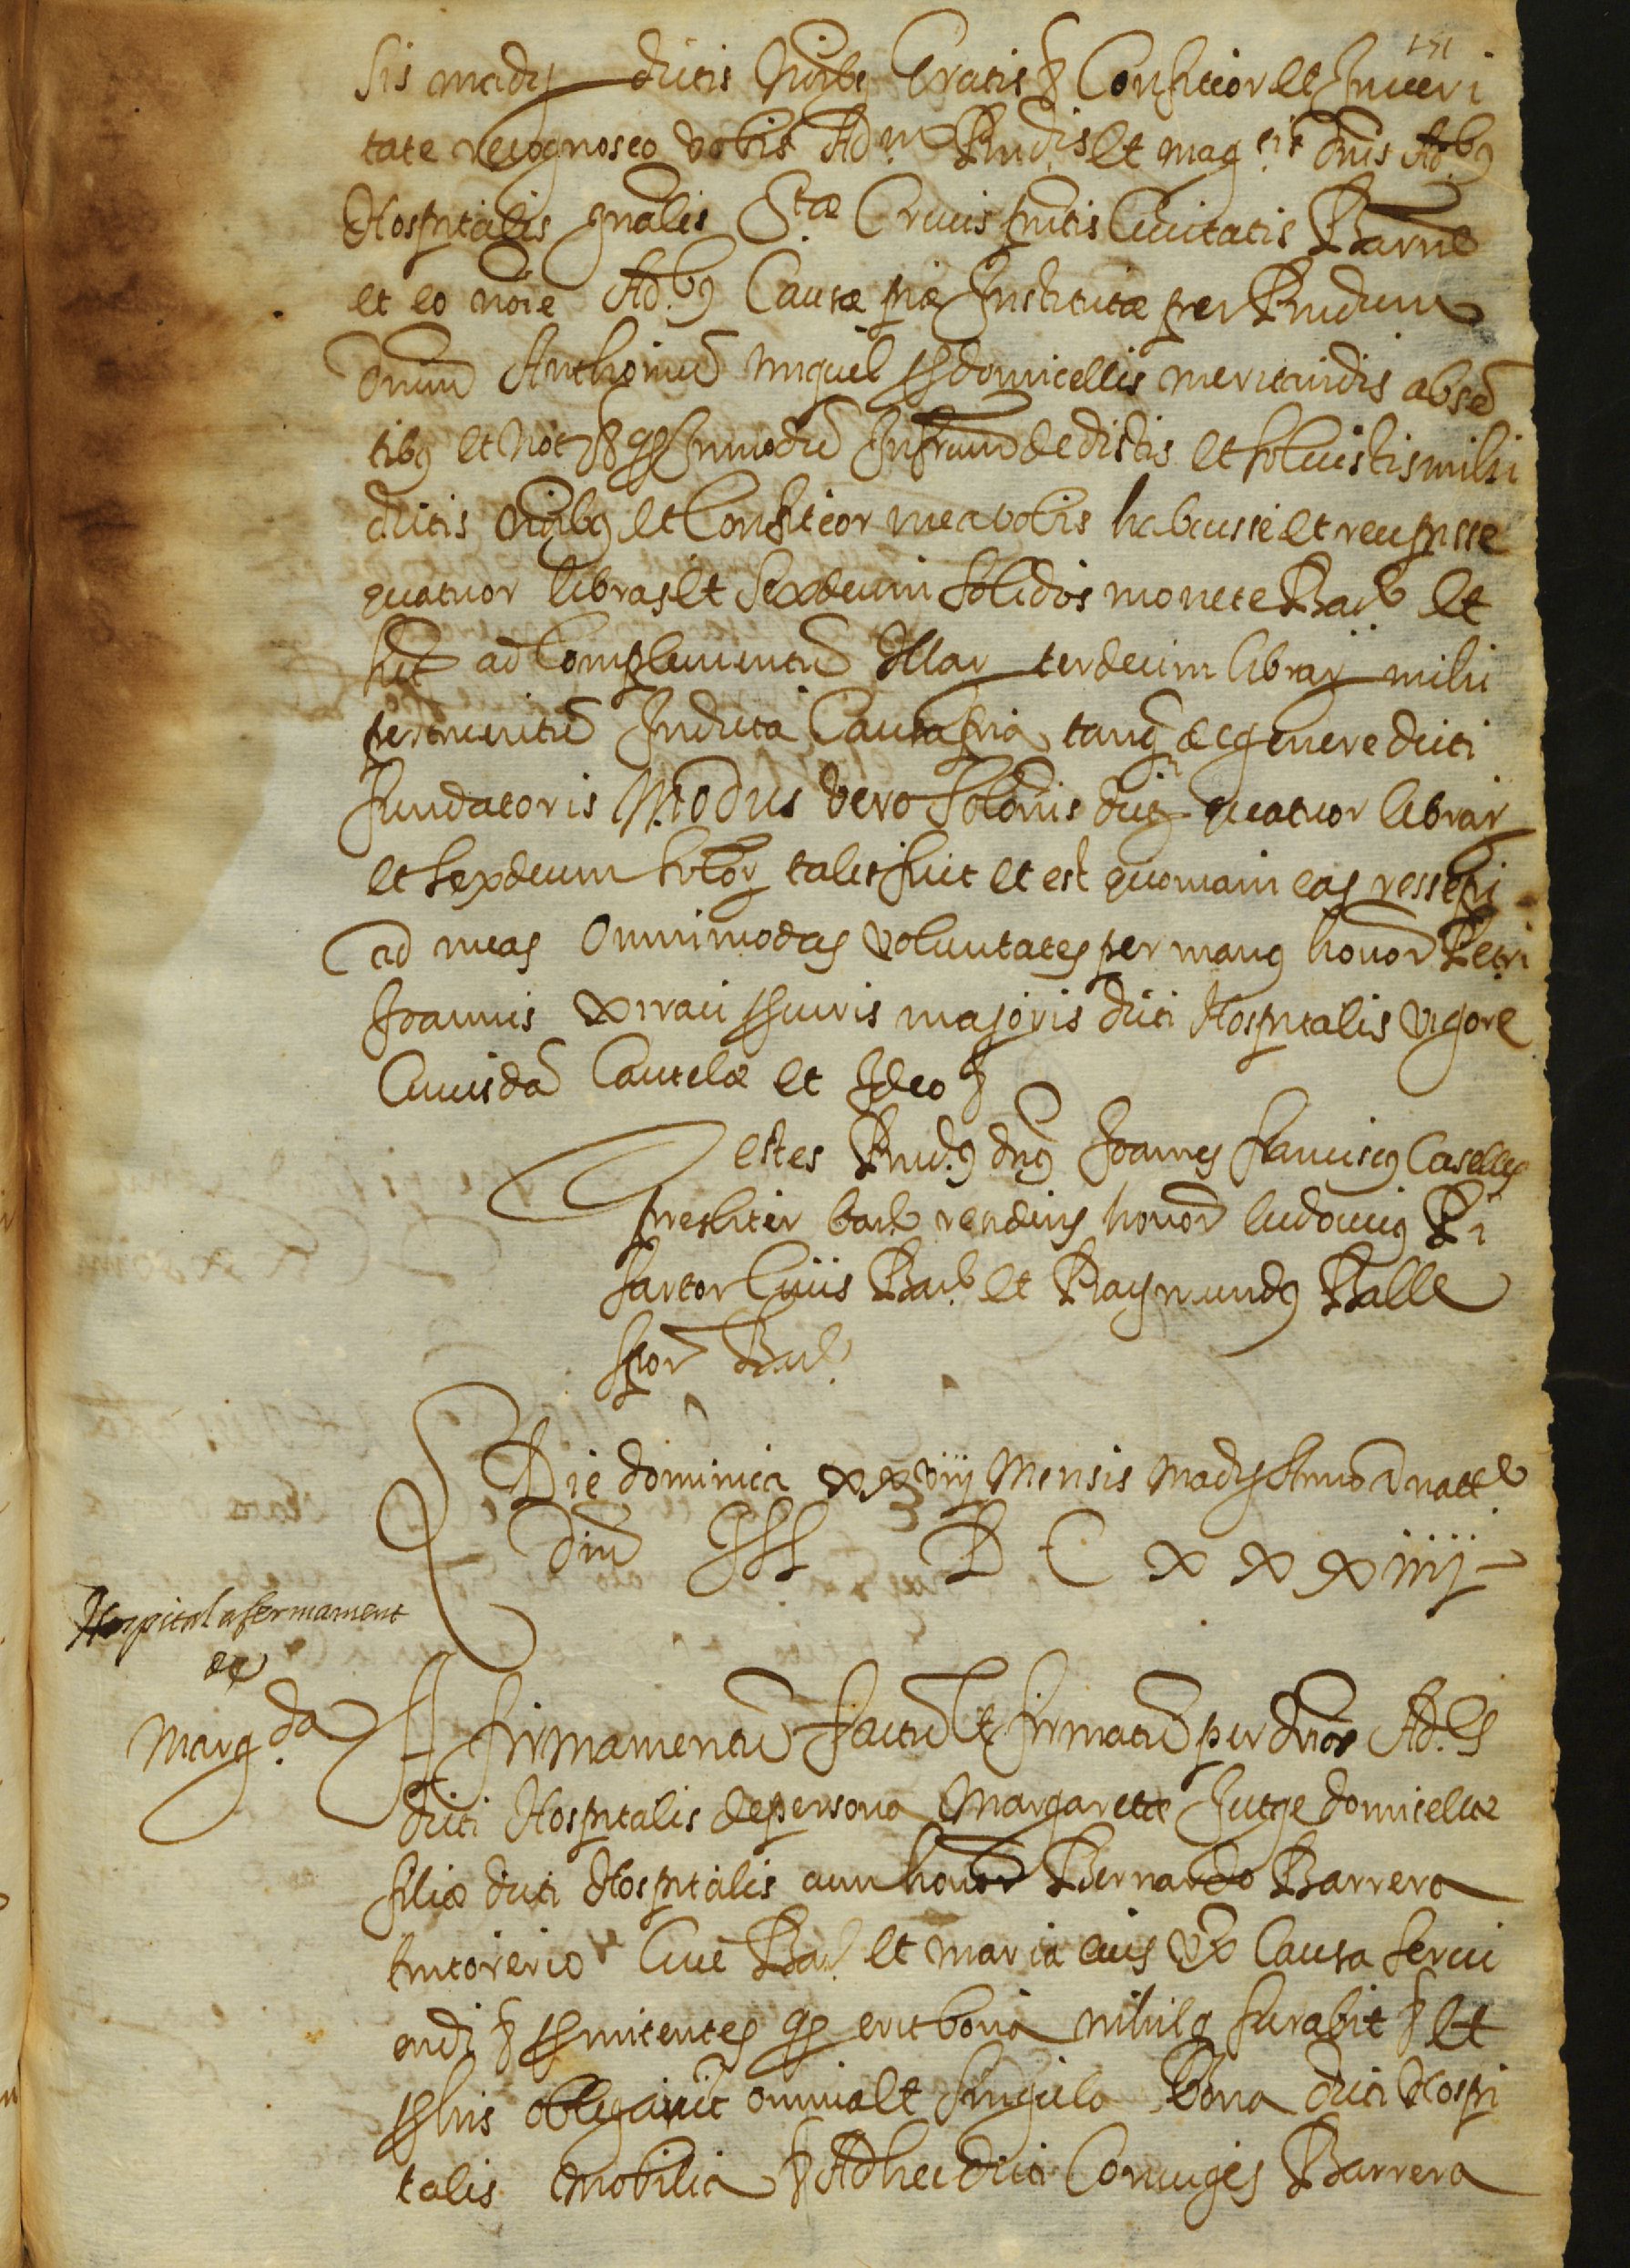 151
sis madij dictis noĩbꝰ Gratis & Confiteor et In veri
tate recognosco vobis Adm. Rndis et mag.cis dnis Ad.bꝰ
Hospitalis gnalis S.tæ Crucis pntis Civitatis Barne
et eo noie Ad.bꝰ Causæ piæ Institutæ per Rndum
dnum Anthoniũ Miquel domicellis meritandis absẽ
tibꝰ et Not & modũ Infrum dedistis et solvistis mihi
dictis noĩbꝰ et Confiteor me a vobis habuisse et recepisse
quatuor libras et sexdecim solidos monete Bar.e et
ad Complementũ Illar terdecim librar mihi
pertinentiũ In dicta Causa pia, tanq̃ de genere dicti
fundatoris Modus vero solonis dictar quatuor librar
et sexdecim solidor talis fuit et est quoniam eas ressepi
ad meas Omnimodas voluntates per manꝰ honor Petri
Joannis majoris dicti Hospitalis vigore
Cuiusdã Cautelæ et Ideo &
Testes Rnd.ꝰ dnꝰ Joannes franciscꝰ Caselles
presbiter bar.e residens honor ludovicꝰ Pi
sartor Civis Bar.e et Raymundꝰ Balle
Bar.e
Die dominica xxviiij Mensis Madij Anno a natte
dni MDCxxxiiij
Hospital afermament
de
Marg.da
firmamentũ factũ et firmatũ per dnos Ad.es
dicti Hospitalis de persona Margaretæ Jutge domicellæ
filiæ dicti Hospitalis cum honor Bernardo Barrera
tintorerio Cive Bar.e et maria eius ux Causa servi
endi & promitentes q erit bona nihilq furabit & et
obligarũt omnia et singula Bona dicti Hospi
talis mobilia & Ad hec dicti Coniuges Barrera